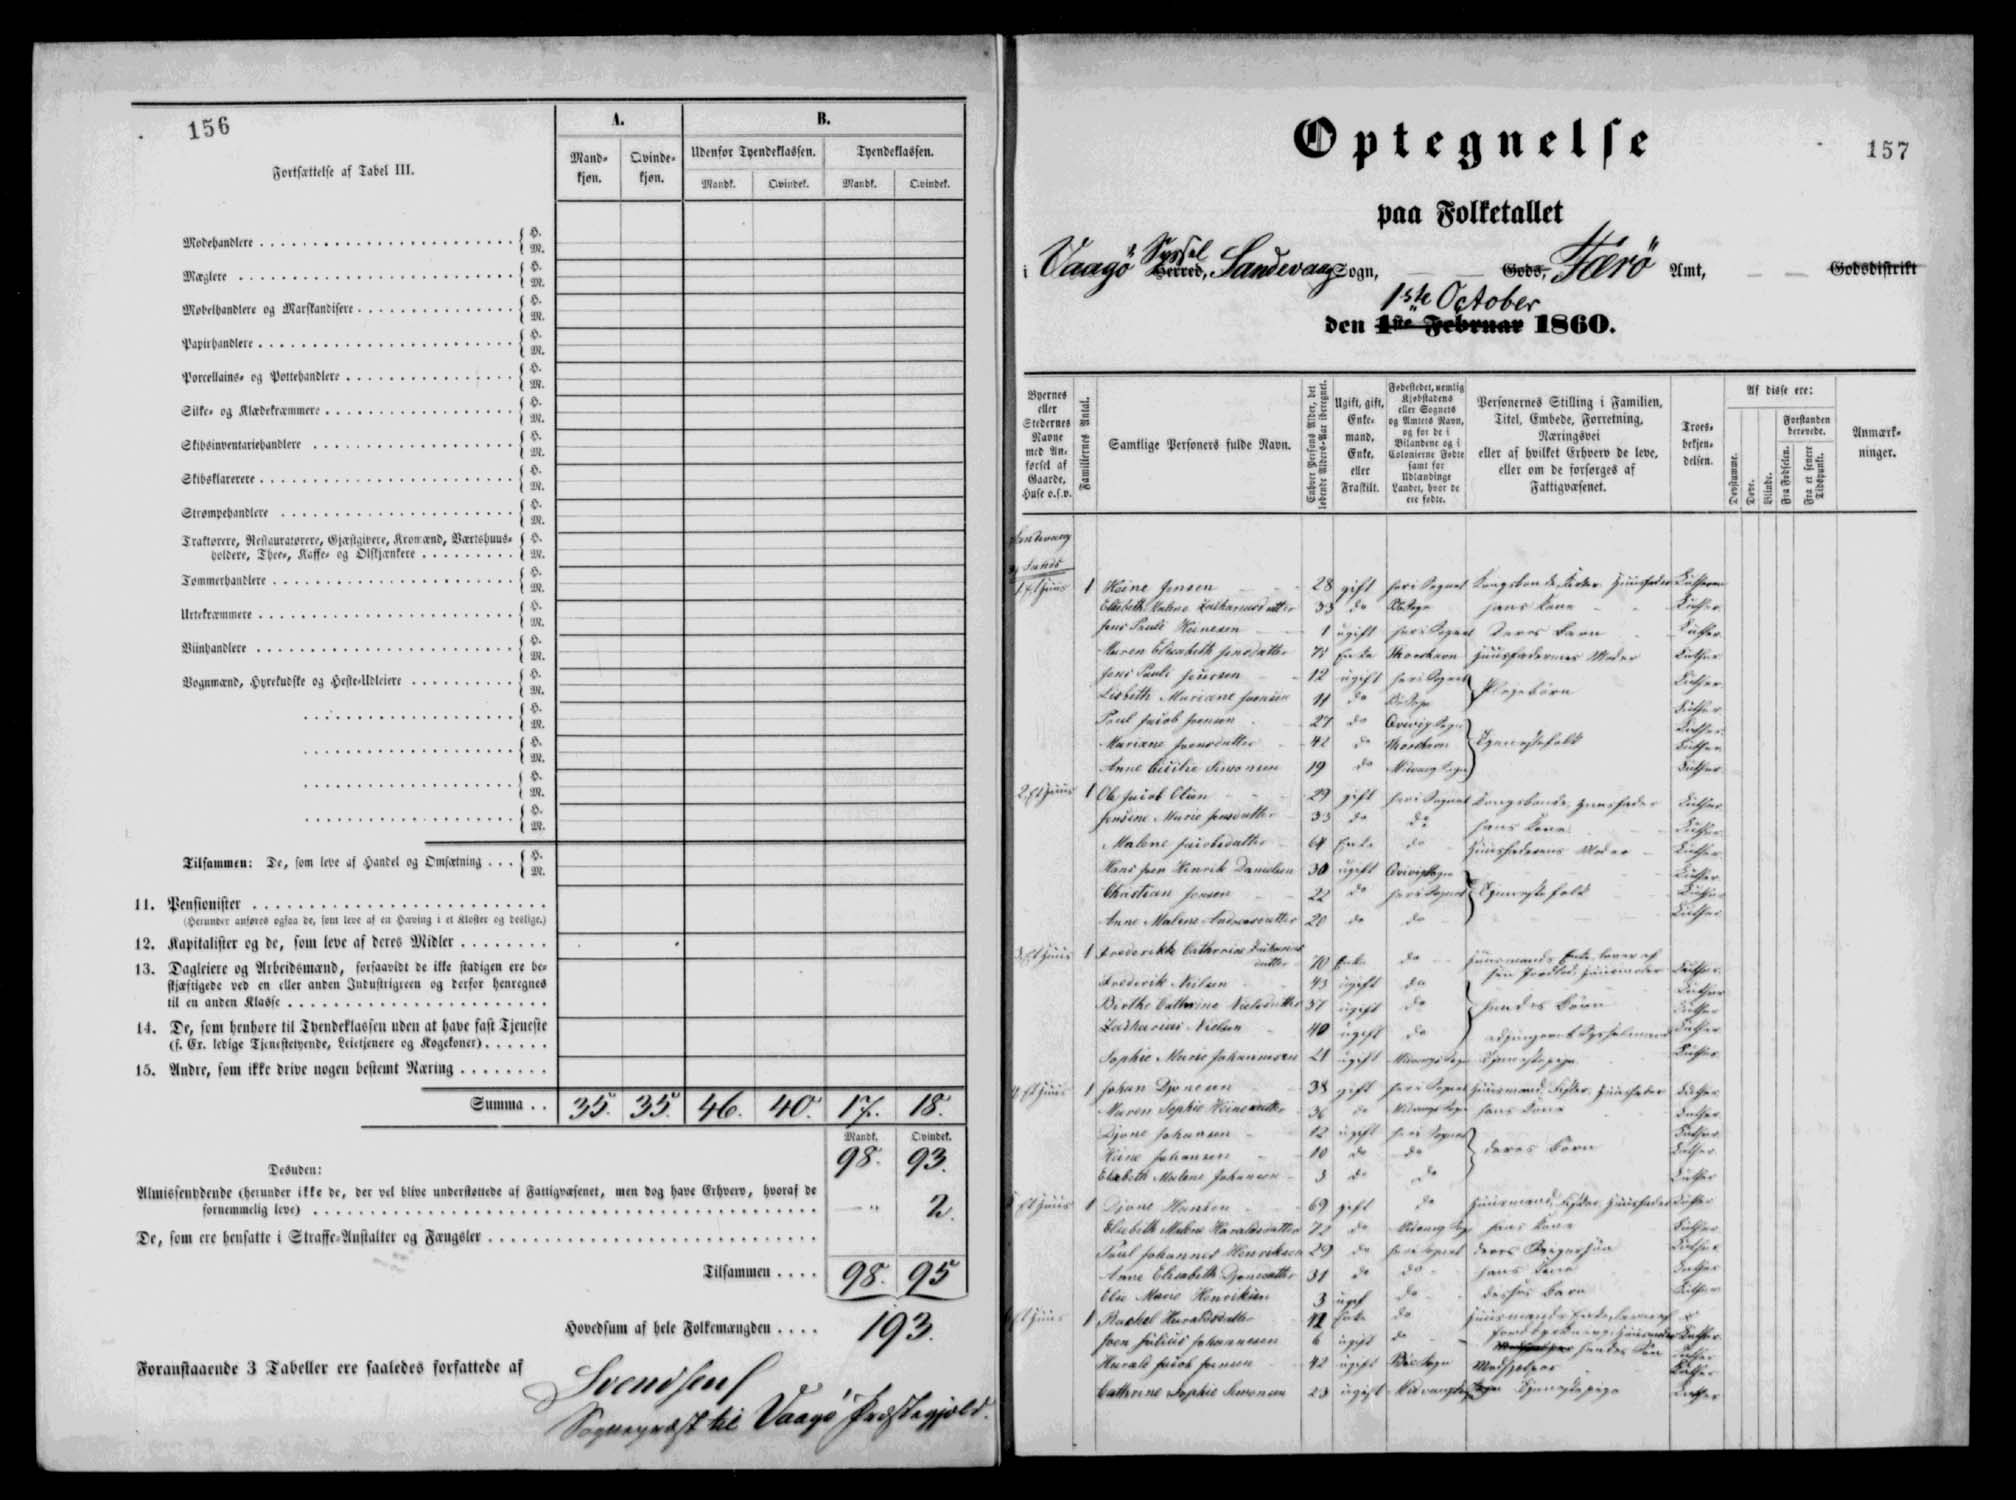 156
Fortsættelse af Tabel III.
A.
B.
Mand-
kjøn.
Qvinde-
kjøn.
Udenfor Tyendeklassen.
Tyendeklassen.
Mandk.
Qvindek.
Mandk.
Qvindek.
Modehandlere { H.
M.
Mæglere { H.
M.
Møbelhandlere og Marskandisere { H.
M.
Papirhandlere { H.
M.
Porcellains- og Pottehandlere { H.
M.
Silke- og Klædekræmmere { H.
M.
Skibsinventariehandlere { H.
M.
Skibsklarerere { H.
M.
Strømpehandlere { H.
M.
Traktører, Restauratører, Gjæstgivere, Kromænd, Værtshuus- { H.
holdere, Thee-, Kaffe- og Ølskjænkere M.
Tømmerhandlere { H.
M.
Urtekræmmere { H.
M.
Viinhandlere { H.
M.
Vognmænd, Hyrekudske og Heste-Udleiere { H.
M.
{ H.
M.
{ H.
M.
{ H.
M.
{ H.
M.
Tilsammen: De, som leve af Handel og Omsætning . . . { H.
M.
11. Pensionister
(Herunder anføres ogsaa de, som leve af en Hæving i et Kloster og deslige.)
12. Kapitalister og de, som leve af deres Midler
13. Dagleiere og Arbeidsmænd, forsaavidt de ikke stadigen ere be-
skjæftigede ved en eller anden Industrigreen og derfor henregnes
til en anden Klasse
14. De, som henhøre til Tyendeklassen uden at have fast Tjeneste
(f. Ex. ledige Tjenestetyende, Leietjenere og Kogekoner)
15. Andre, som ikke drive nogen bestemt Næring
Summa . . 35. 35. 46. 40. 17. 18.
Mandk. Qvindek.
98. 93.
Desuden:
Almissenydende (herunder ikke de, der vel blive understøttede af Fattigvæsenet, men dog have Erhverv, hvoraf de
fornemmelig leve) — " 2.
De, som ere hensatte i Straffe-Anstalter og Fængsler
Tilsammen . . . . 98. 95
Hovedsum af hele Folkemængden . . . . 193.
Foranstaaende 3 Tabeller ere saaledes forfattede af
Svendsen
Sognepræst til Vaagø Præstegjæld.
Optegnelse
157
paa Folketallet
i Vaagø Syssel Herred, Sandevaag Sogn, — — Gods, Færø Amt, — — Godsdistrikt
1ste October
den 1ste Februar 1860.
Byernes
eller
Stedernes
Navne
med An-
førsel af
Gaarde,
Huse o.s.v.
Familiernes Antal.
Samtlige Personers fulde Navn.
Enhver Persons Alder, det
løbende Alders-Aar iberegnet.
Ugift, gift,
Enke-
mand,
Enke,
eller
Fraskilt.
Fødestedet, nemlig
Kjøbstadens
eller Sognets
og Amtets Navn,
og for de i
Bilandene og i
Colonierne Fødte
samt for
Udlændinge
Landet, hvor de
ere fødte.
Personernes Stilling i Familien,
Titel, Embede, Forretning,
Næringsvei
eller af hvilket Erhverv de leve,
eller om de forsørges af
Fattigvæsenet.
Troes-
bekjen-
delsen.
Af disse ere:
Døvstumme.
Døve.
Blinde.
Forstanden
berøvede.
Fra Fødselen.
Fra et senere
Tidspunkt.
Anmærk-
ninger.
Sandevaag
1 Et Huus 1 Heine Jensen 28 gift her i Sognet
Elisabeth Malene Zachariasdatter 33 do hans Kone Luther.
Jens Pauli Heinesen 1 ugift her i Sognet Deres Barn Luther.
Maren Elisabeth Jensdatter Enke Thorshavn Huusfaderens Moder Luther.
Jens Pauli Joensen 12 ugift her i Sognet } Pleiebørn Luther.
Lisbeth Mariane Joensen 11 do Luther.
Poul Jacob Joensen 27 do Qvivig Sogn } Tjenestefolk Luther.
Mariane Joensdatter 42 do Thorshavn Luther.
Anne Cicilie Simonsen 19 do Midvaag Sogn Luther.
2 Et Huus 1 Ole Jacob Olsen 29 gift her i Sognet Kongsbonde, Huusfader Luther.
Marie Jensdatter 33 do do hans Kone Luther.
Malene Jacobsdatter 64 Enke do Huusfaderens Moder Luther.
Hans Joen Henrik Danielsen 30 ugift Qvivig Sogn } Tjenestefolk Luther.
Christian Jensen 22 do her i Sognet Luther.
Anne Malene Andreasdatter 20 do do Luther.
3 Et Huus 1 Frederikke Cathrine
datter 70 Enke do Huusmands Enke, lever af
sin Jordlod, Huusmoder Luther.
Frederik Nielsen 43 ugift do } hendes Børn Luther.
Birthe Cathrine Nielsdatter 37 ugift do Luther.
Zacharias Nielsen 40 ugift do Luther.
Sophie Marie Johannesen 21 ugift Midvaags Sogn Tjenestepige Luther.
4 Et Huus 1 Johan Djonesen 38 gift her i Sognet Huusmand, Fisker, Huusfader Luther.
Maren Sophie Heinesdatter 36 do Midvaags Sogn hans Kone Luther.
Djone Johansen 12 ugift her i Sognet } deres Børn Luther.
Heine Johansen 10 do do Luther.
Elsebeth Malene Johansen 3 do do Luther.
5 Et Huus 1 Djone Hansen 69 gift do Huusmand, Fisker, Huusfader Luther.
Elsebeth Malene Haraldsdatter 72 do hans Kone Luther.
Poul Johannes Henriksen 29 do her i Sognet deres Svigersøn Luther.
Anne Elisabeth Djonesdatter 31 do do hans Kone Luther.
Else Marie Henriksen 3 ugift do disses Barn Luther.
Et Huus 1 Rachel Haraldsdatter Enke do
Joen Julius Johannesen 6 ugift do hendes Søn Luther.
Harald Jacob Joensen 42 ugift Bøe Sogn Medhjelper Luther.
Cathrine Sophie Simonsen 23 ugift Midvaags Sogn Tjenestepige Luther.